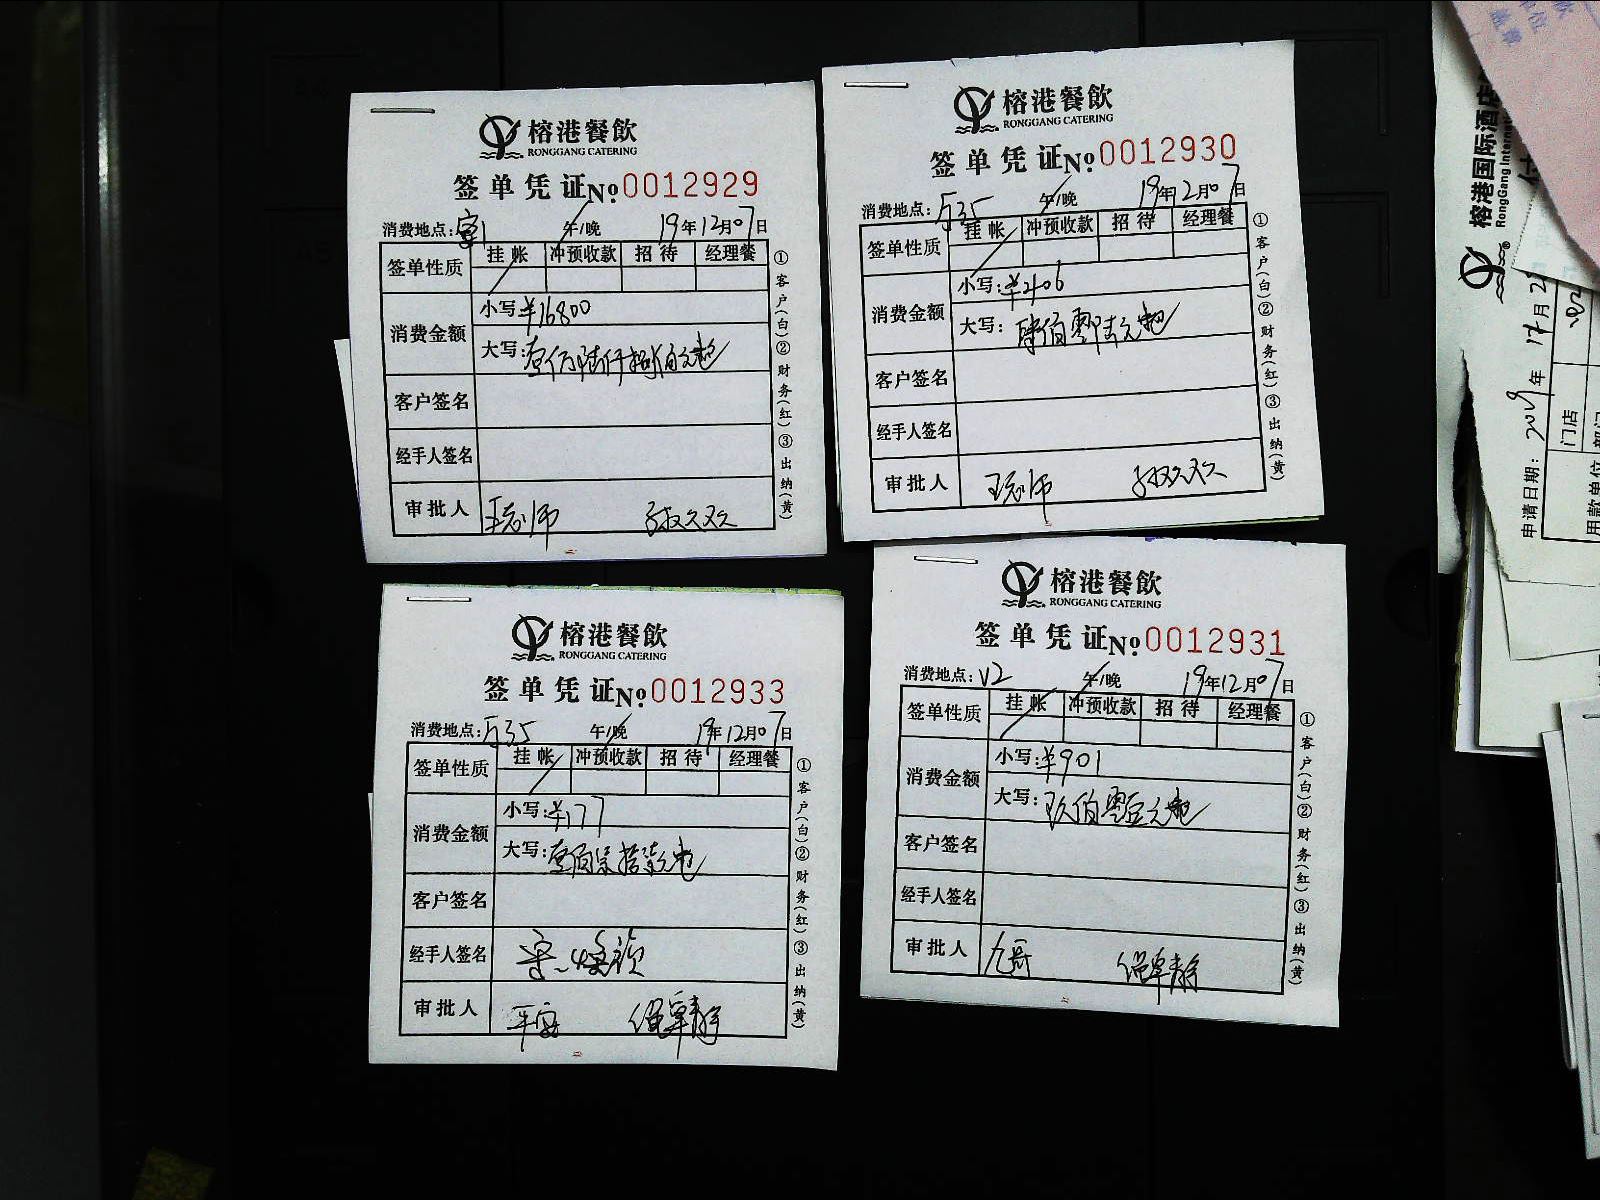 榕港餐飲
RONGGANG CATERING
签单凭证 No. 0012929
消费地点: 午/晚 19年12月07日
签单性质 挂帐 冲预收款 招待 经理餐
消费金额 小写:¥16800
大写:壹万陆仟捌佰元整
客户签名
经手人签名
审批人
①客户(白)②财务(红)③出纳(黄)
榕港餐飲
RONGGANG CATERING
签单凭证 No. 0012930
消费地点: 午/晚 19年12月07日
签单性质 挂帐 冲预收款 招待 经理餐
消费金额 小写:¥406
大写:肆佰零陆元整
客户签名
经手人签名
审批人
①客户(白)②财务(红)③出纳(黄)
榕港餐飲
RONGGANG CATERING
签单凭证 No. 0012933
消费地点: 午/晚 19年12月07日
签单性质 挂帐 冲预收款 招待 经理餐
消费金额 小写:¥177
大写:壹佰柒拾柒元整
客户签名
经手人签名
审批人
①客户(白)②财务(红)③出纳(黄)
榕港餐飲
RONGGANG CATERING
签单凭证 No. 0012931
消费地点:V2 午/晚 19年12月07日
签单性质 挂帐 冲预收款 招待 经理餐
消费金额 小写:¥901
大写:玖佰零壹元整
客户签名
经手人签名
审批人 九哥
①客户(白)②财务(红)③出纳(黄)
榕港国际酒店
RongGang Internati
申请日期: 2019年12月2
门店
用款单位